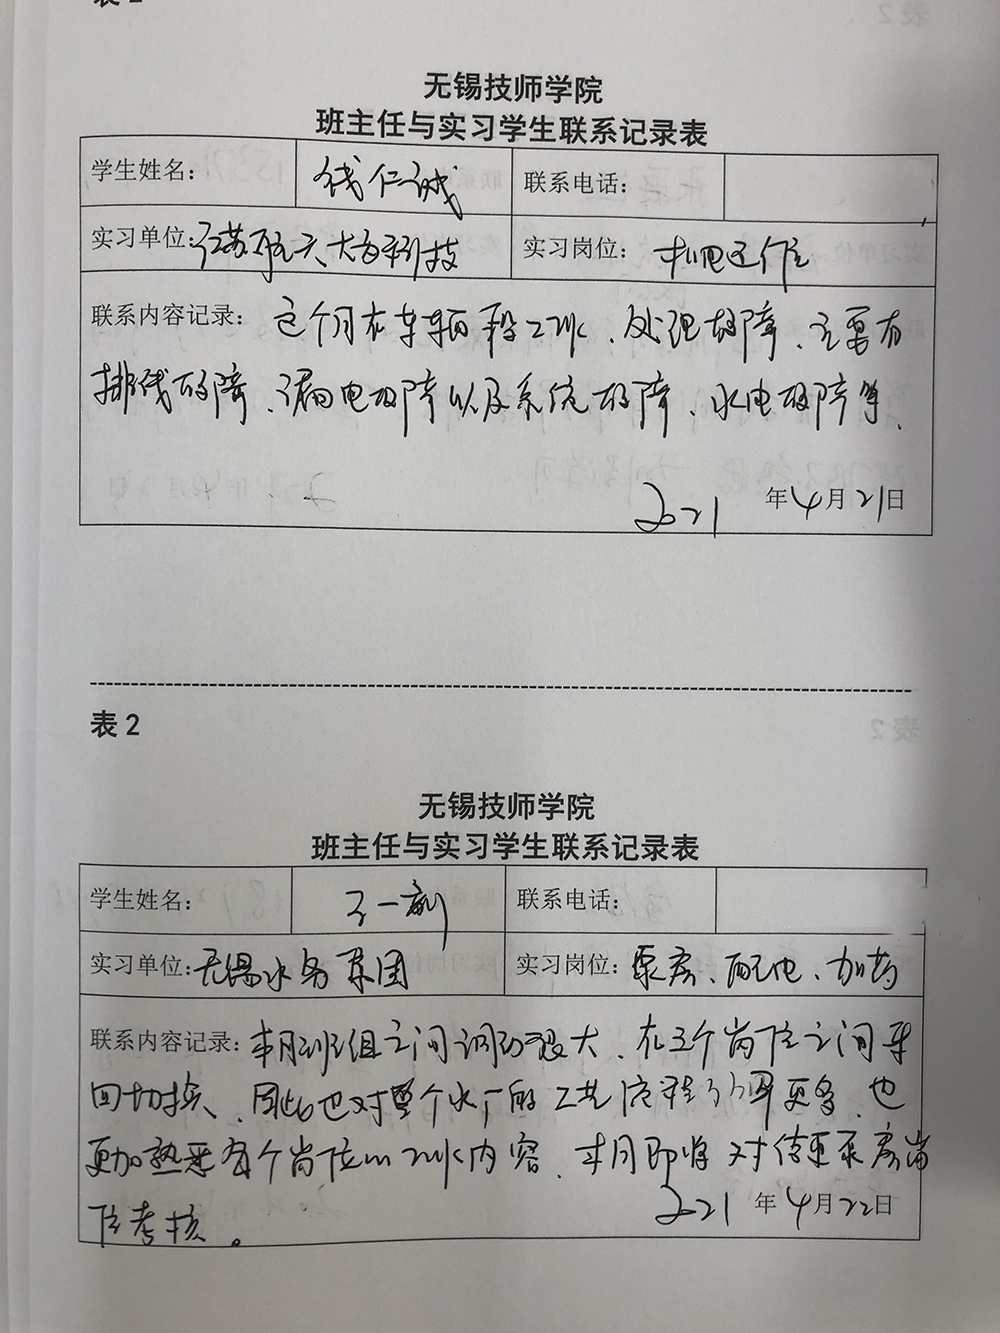 无锡技师学院
班主任与实习学生联系记录表
学生姓名: 钱仁诚 联系电话:
实习单位: 江苏 六 大 科技 实习岗位: 机电工作
联系内容记录: 这个月在车辆段工作、处理故障、主要有
排线故障、漏电故障以及系统故障、水电故障等.
2021 年4月21日
表 2
无锡技师学院
班主任与实习学生联系记录表
学生姓名: 一 联系电话:
实习单位: 无锡水务集团 实习岗位: 泵房、配电、加药
联系内容记录: 本月班组之间调动很大、在三个岗位之间来
回切换、因此也对整个水厂的工艺流程了解更多.也
更加熟悉各个岗位的工作内容.本月即将对 泵房岗
位考核。
2021 年4月22日
表2